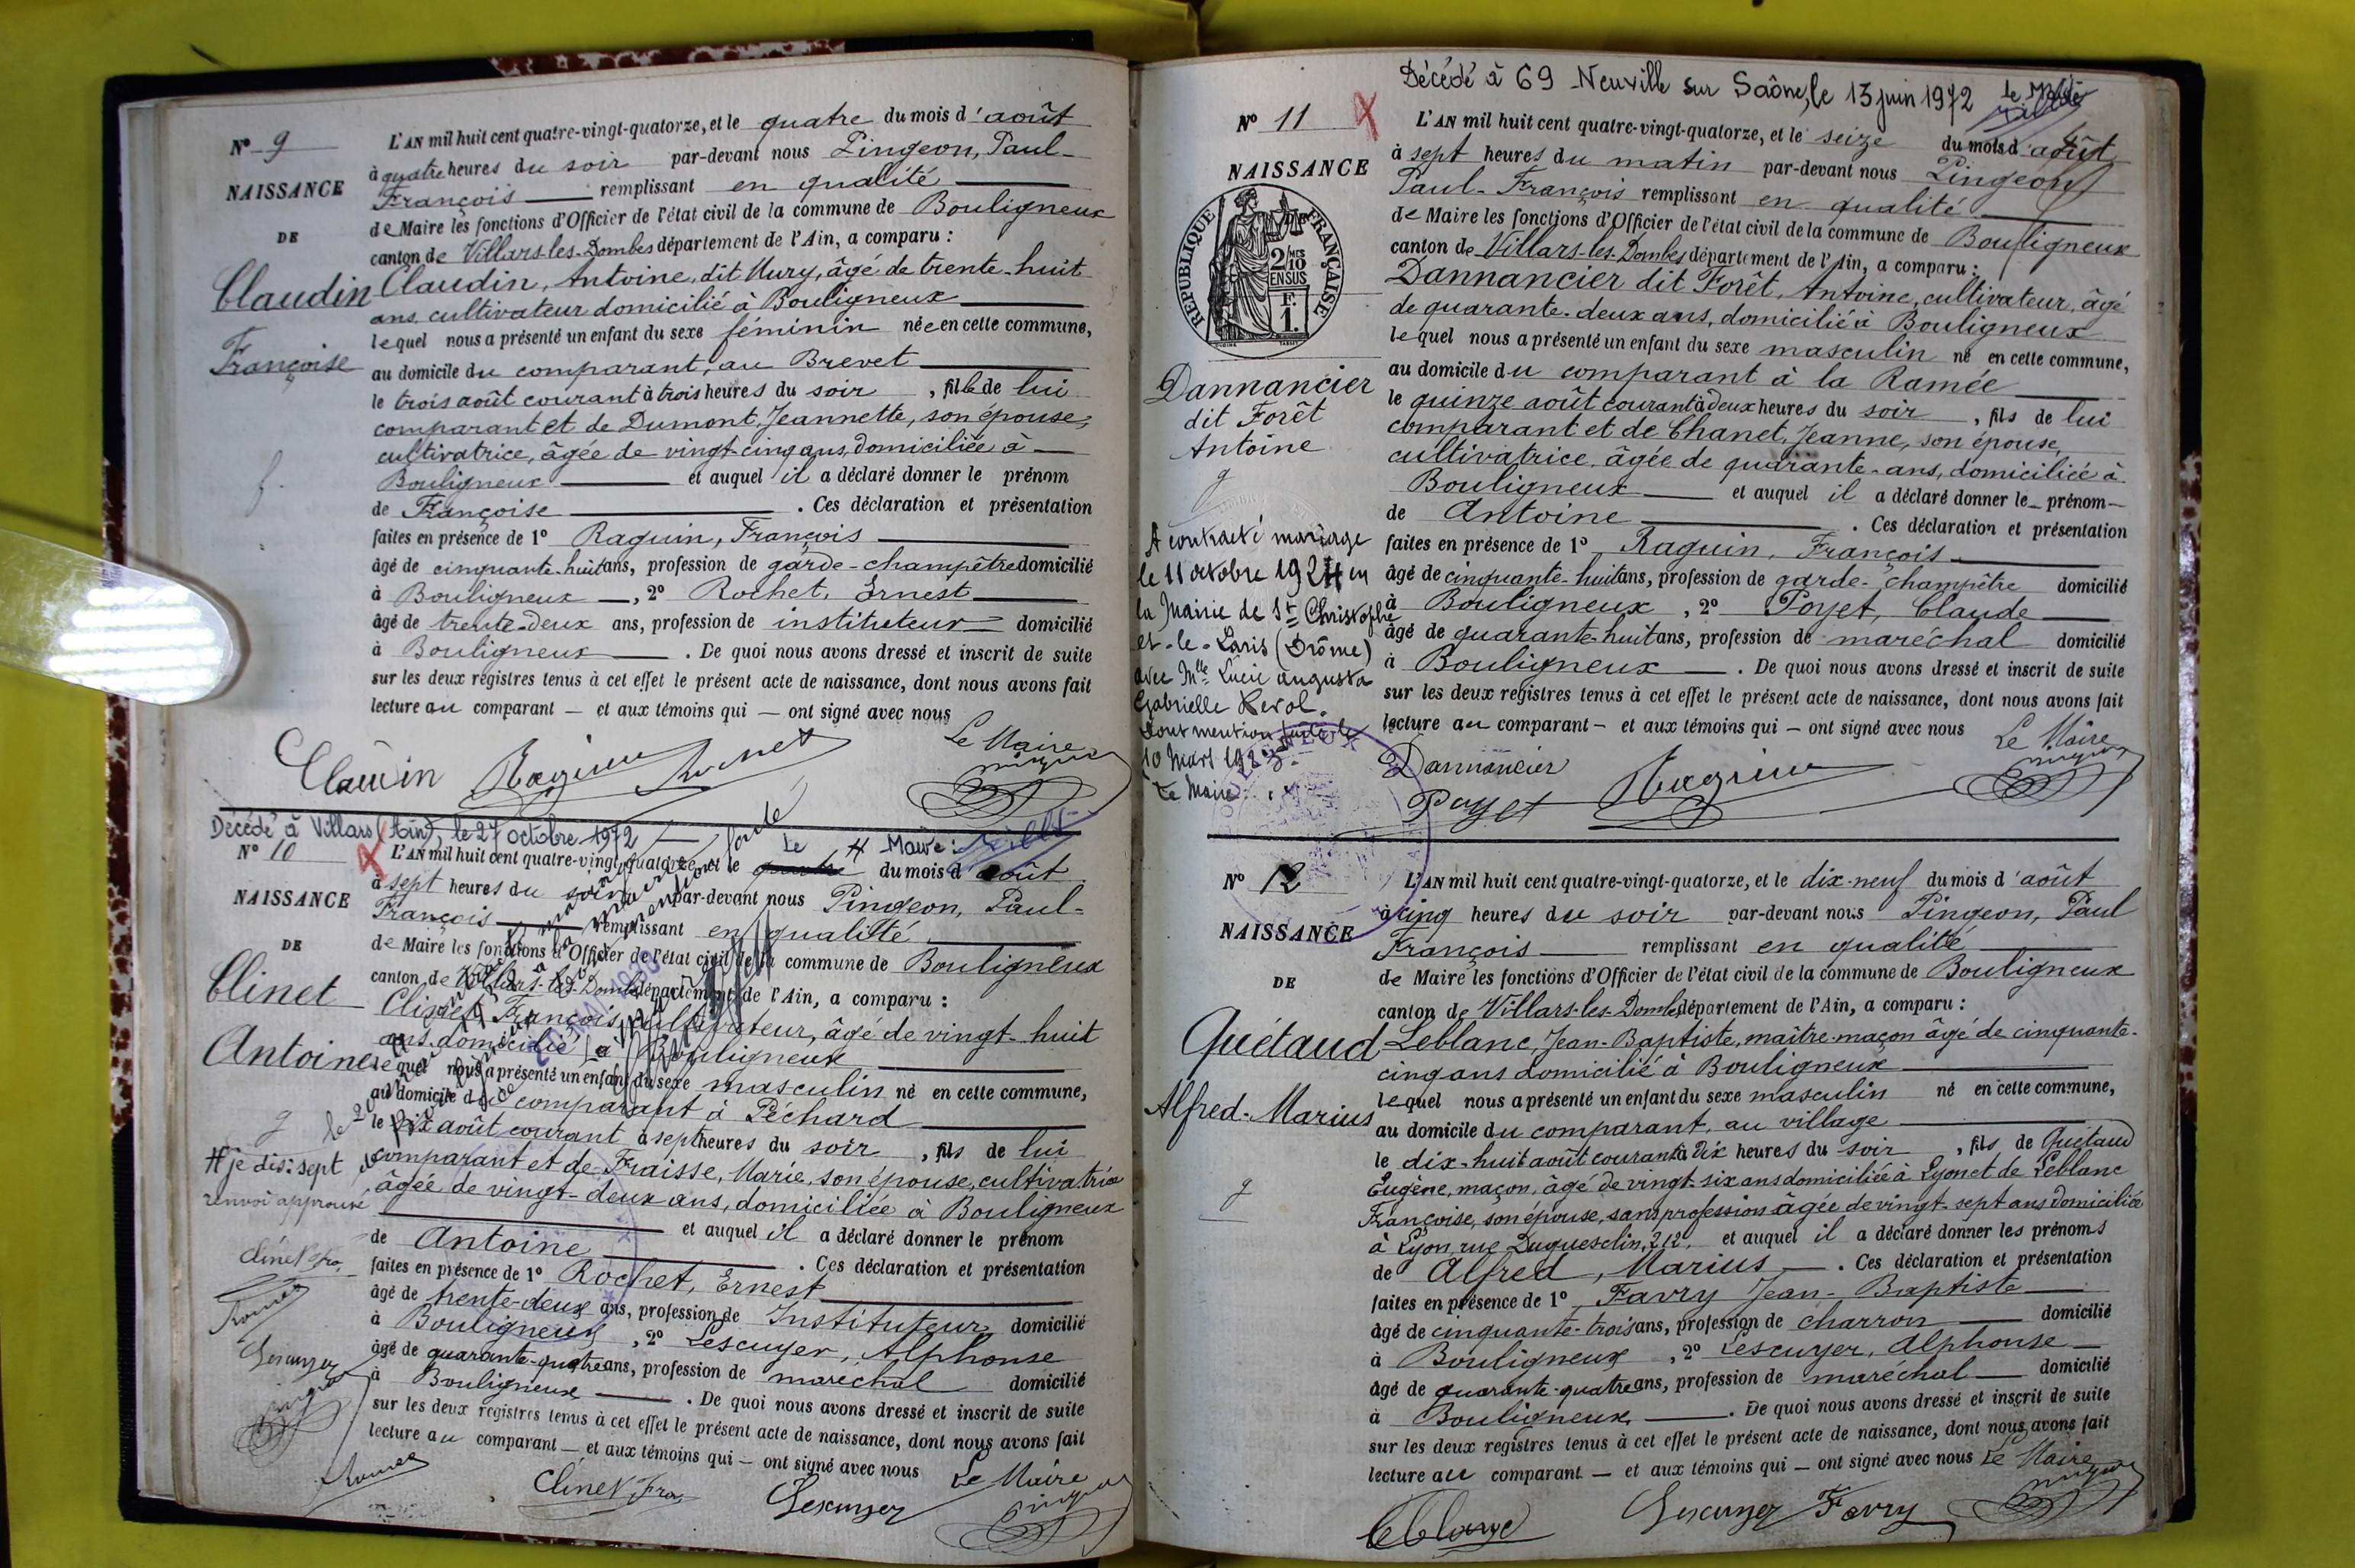 N° 9
NAISSANCE
DE
Claudin
Françoise
L'AN mil huit cent quatre-vingt-quatorze, et le quatre du mois d'août
à quatre heures du soir par-devant nous Pingeon, Paul-
François remplissant en qualité
de Maire les fonctions d'Officier de l'état civil de la commune de Bouligneux
canton de Villars-les-Dombes département de l'Ain, a comparu :
Claudin, Antoine, dit Mury, âgé de trente-huit
ans, cultivateur domicilié à Bouligneux
lequel nous a présenté un enfant du sexe féminin née en cette commune,
au domicile du comparant, au Brevet
le trois août courant à trois heures du soir , fille de lui
comparant et de Dumont, Jeannette, son épouse,
cultivatrice, âgée de vingt-cinq ans, domiciliée à
Bouligneux et auquel il a déclaré donner le prénom
de Françoise . Ces déclaration et présentation
faites en présence de 1° Raguin, François
âgé de cinquante-huit ans, profession de garde-champêtre domicilié
à Bouligneux , 2° Rochet, Ernest
âgé de trente-deux ans, profession de instituteur domicilié
à Bouligneux . De quoi nous avons dressé et inscrit de suite
sur les deux registres tenus à cet effet le présent acte de naissance, dont nous avons fait
lecture au comparant — et aux témoins qui — ont signé avec nous
Le Maire
Claudin Raguin Rochet Pingeon
Décédé à Villars (Ain), le 27 octobre 1972
Le Maire :
N° 10
NAISSANCE
DE
Clinet
Antoine
L'AN mil huit cent quatre-vingt-quatorze, et le du mois d'août
à sept heures du soir par-devant nous Pingeon, Paul-
François remplissant en qualité
de Maire les fonctions d'Officier de l'état civil de la commune de Bouligneux
canton de Villars-les-Dombes département de l'Ain, a comparu :
Clinet, François, cultivateur, âgé de vingt-huit
ans domicilié à Bouligneux
lequel nous a présenté un enfant du sexe masculin né en cette commune,
au domicile du comparant à Péchard
le août courant à sept heures du soir , fils de lui
comparant et de Fraisse, Marie, son épouse, cultivatrice
âgée de vingt-deux ans, domiciliée à Bouligneux
et auquel il a déclaré donner le prénom
de Antoine . Ces déclaration et présentation
faites en présence de 1° Rochet, Ernest
âgé de trente-deux ans, profession de Instituteur domicilié
à Bouligneux , 2° Lescuyer, Alphonse
âgé de quarante-quatre ans, profession de maréchal domicilié
à Bouligneux . De quoi nous avons dressé et inscrit de suite
sur les deux registres tenus à cet effet le présent acte de naissance, dont nous avons fait
lecture au comparant — et aux témoins qui — ont signé avec nous
Le Maire
je dis: sept
renvoi approuvé
Clinet fra.
Rochet
Lescuyer
Pingeon
Rochet Clinet fra. Lescuyer Pingeon
Décédé à 69 Neuville sur Saône, le 13 juin 1972 Le Maire
N° 11
NAISSANCE
RÉPUBLIQUE FRANÇAISE
2/10 MES
EN SUS
1 F.
Dannancier
dit Forêt
Antoine
A contracté mariage
le 11 octobre 1924 en
la Mairie de St Christophe
et-le-Laris (Drôme)
avec Mlle Lucie Augusta
Gabrielle Revol.
Dont mention faite le
10 Mars
Le Maire
L'AN mil huit cent quatre-vingt-quatorze, et le seize du mois d'août
à sept heures du matin par-devant nous Pingeon
Paul-François remplissant en qualité
de Maire les fonctions d'Officier de l'état civil de la commune de Bouligneux
canton de Villars-les-Dombes département de l'Ain, a comparu :
Dannancier dit Forêt, Antoine, cultivateur, âgé
de quarante-deux ans, domicilié à Bouligneux
lequel nous a présenté un enfant du sexe masculin né en cette commune,
au domicile du comparant à la Ramée
le quinze août courant à deux heures du soir , fils de lui
comparant et de Chanet, Jeanne, son épouse,
cultivatrice, âgée de quarante-ans, domiciliée à
Bouligneux et auquel il a déclaré donner le prénom
de Antoine . Ces déclaration et présentation
faites en présence de 1° Raguin, François
âgé de cinquante-huit ans, profession de garde-champêtre domicilié
à Bouligneux , 2° Poyet, Claude
âgé de quarante-huit ans, profession de maréchal domicilié
à Bouligneux . De quoi nous avons dressé et inscrit de suite
sur les deux registres tenus à cet effet le présent acte de naissance, dont nous avons fait
lecture au comparant — et aux témoins qui — ont signé avec nous
Le Maire
Dannancier Raguin Pingeon
Poyet
N° 12
NAISSANCE
DE
Quétaud
Alfred-Marius
L'AN mil huit cent quatre-vingt-quatorze, et le dix-neuf du mois d'août
à cinq heures du soir par-devant nous Pingeon, Paul
François remplissant en qualité
de Maire les fonctions d'Officier de l'état civil de la commune de Bouligneux
canton de Villars-les-Dombes département de l'Ain, a comparu :
Leblanc, Jean-Baptiste, maître-maçon âgé de cinquante-
cinq ans domicilié à Bouligneux
lequel nous a présenté un enfant du sexe masculin né en cette commune,
au domicile du comparant, au village
le dix-huit août courant à dix heures du soir , fils de Quétaud
Eugène, maçon, âgé de vingt-six ans domiciliée à Lyon et de Leblanc
Françoise, son épouse, sans profession âgée de vingt-sept ans domiciliée
à Lyon, rue Duguesclin, 212, et auquel il a déclaré donner les prénoms
de Alfred, Marius . Ces déclaration et présentation
faites en présence de 1° Favry Jean-Baptiste
âgé de cinquante-trois ans, profession de charron domicilié
à Bouligneux , 2° Lescuyer, Alphonse
âgé de quarante-quatre ans, profession de maréchal domicilié
à Bouligneux . De quoi nous avons dressé et inscrit de suite
sur les deux registres tenus à cet effet le présent acte de naissance, dont nous avons fait
lecture au comparant — et aux témoins qui — ont signé avec nous Le Maire
Leblanc Lescuyer Favry Pingeon